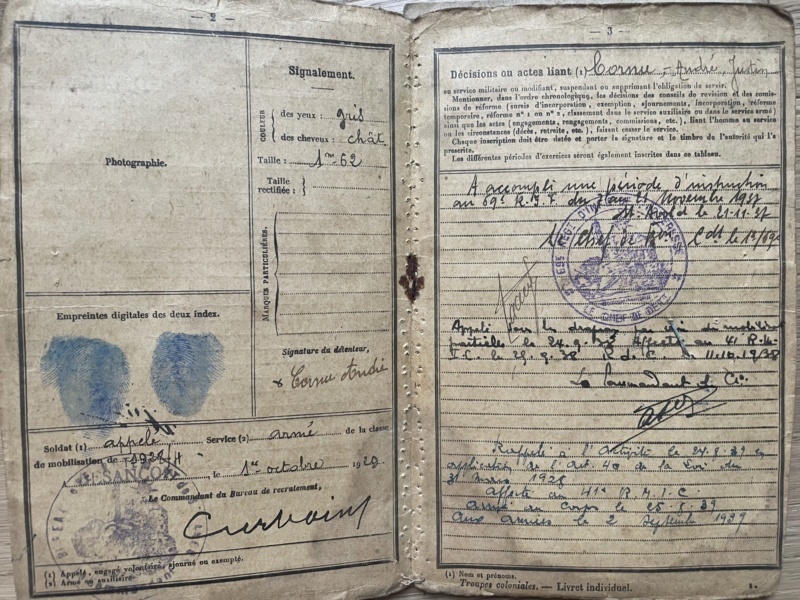 — 2 —
Photographie.
Empreintes digitales des deux index.
Signalement.
COULEUR
des yeux : gris
des cheveux : chât
Taille : 1m62
Taille
rectifiée :
MARQUES PARTICULIÈRES.
Signature du détenteur,
Cornu André
Soldat (1) appelé Service (2) armé de la classe
de mobilisation de 1928
BESANÇON, le 1er octobre 1929
Le Commandant du Bureau de recrutement,
(1) Appelé, engagé volontaire, ajourné ou exempté.
(2) Armé ou auxiliaire.
— 3 —
Décisions ou actes liant (1) Cornu - André, Justin
au service militaire ou modifiant, suspendant ou supprimant l'obligation de servir.
Mentionner, dans l'ordre chronologique, les décisions des conseils de revision et des commissions
de réforme (sursis d'incorporation, exemption, ajournements, incorporation, réforme
temporaire, réforme n° 1 ou n° 2, classement dans le service auxiliaire ou dans le service armé)
ainsi que les actes (engagements, rengagements, commissions, etc.), liant l'homme au service
ou les circonstances (décès, retraite, etc.), faisant cesser le service.
Chaque inscription doit être datée et porter la signature et le timbre de l'autorité qui l'a
prescrite.
Les différentes périodes d'exercices seront également inscrites dans ce tableau.
A accompli une période d'instruction
au 69e R.I.F. du au 21 Novembre 1937
St. Avold le 21-11-37
Le Chef de Bon Cdt le 1er/69e
LE CHEF DE BON
Appelé sous les drapeaux par suite de mobilisation
partielle le 24.9.38 Affecté au 41 R.M.
I.C. le 25.9.38 R.d.C. 11.10.1938
Le Commandant de Cie
Rappelé à l'activité le 24.8.39 en
application de l'Art. 40 de la Loi du
31 mars 1928
Affecté au 41e R.M.I.C.
Arrivé au Corps le 25.8.39
Aux armées le 2 Septembre 1939
(1) Nom et prénoms.
Troupes coloniales. — Livret individuel.